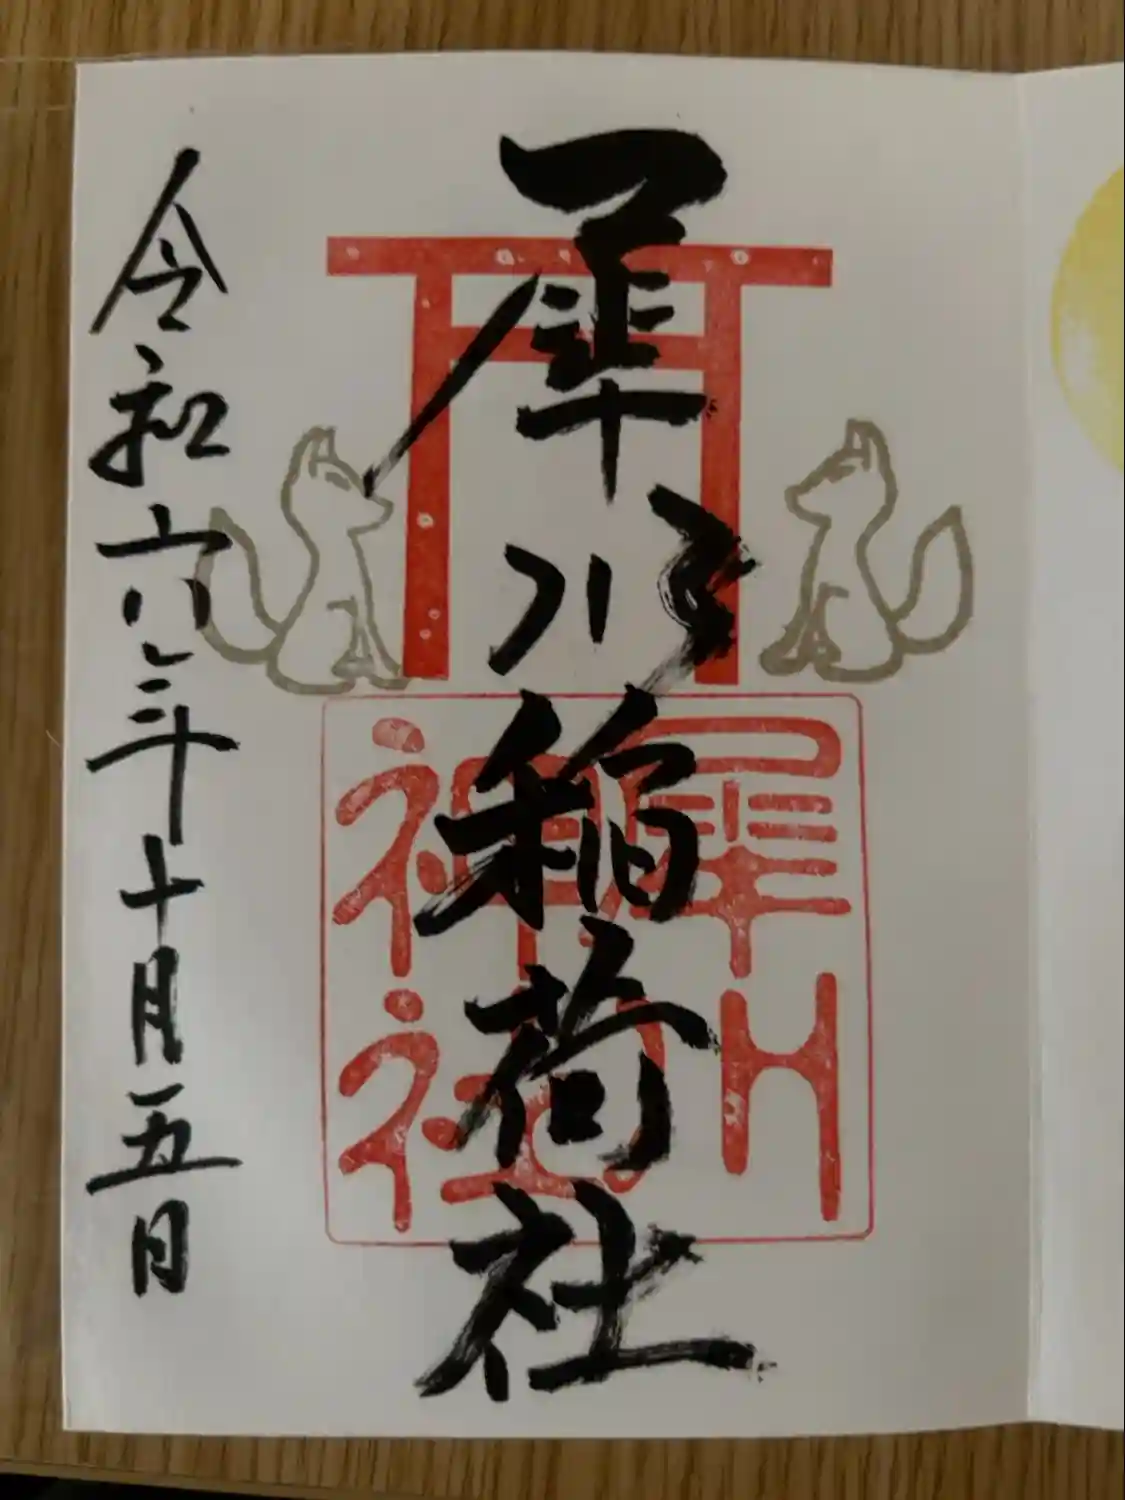 犀川稲荷社
犀川
神社
令和六年十月五日